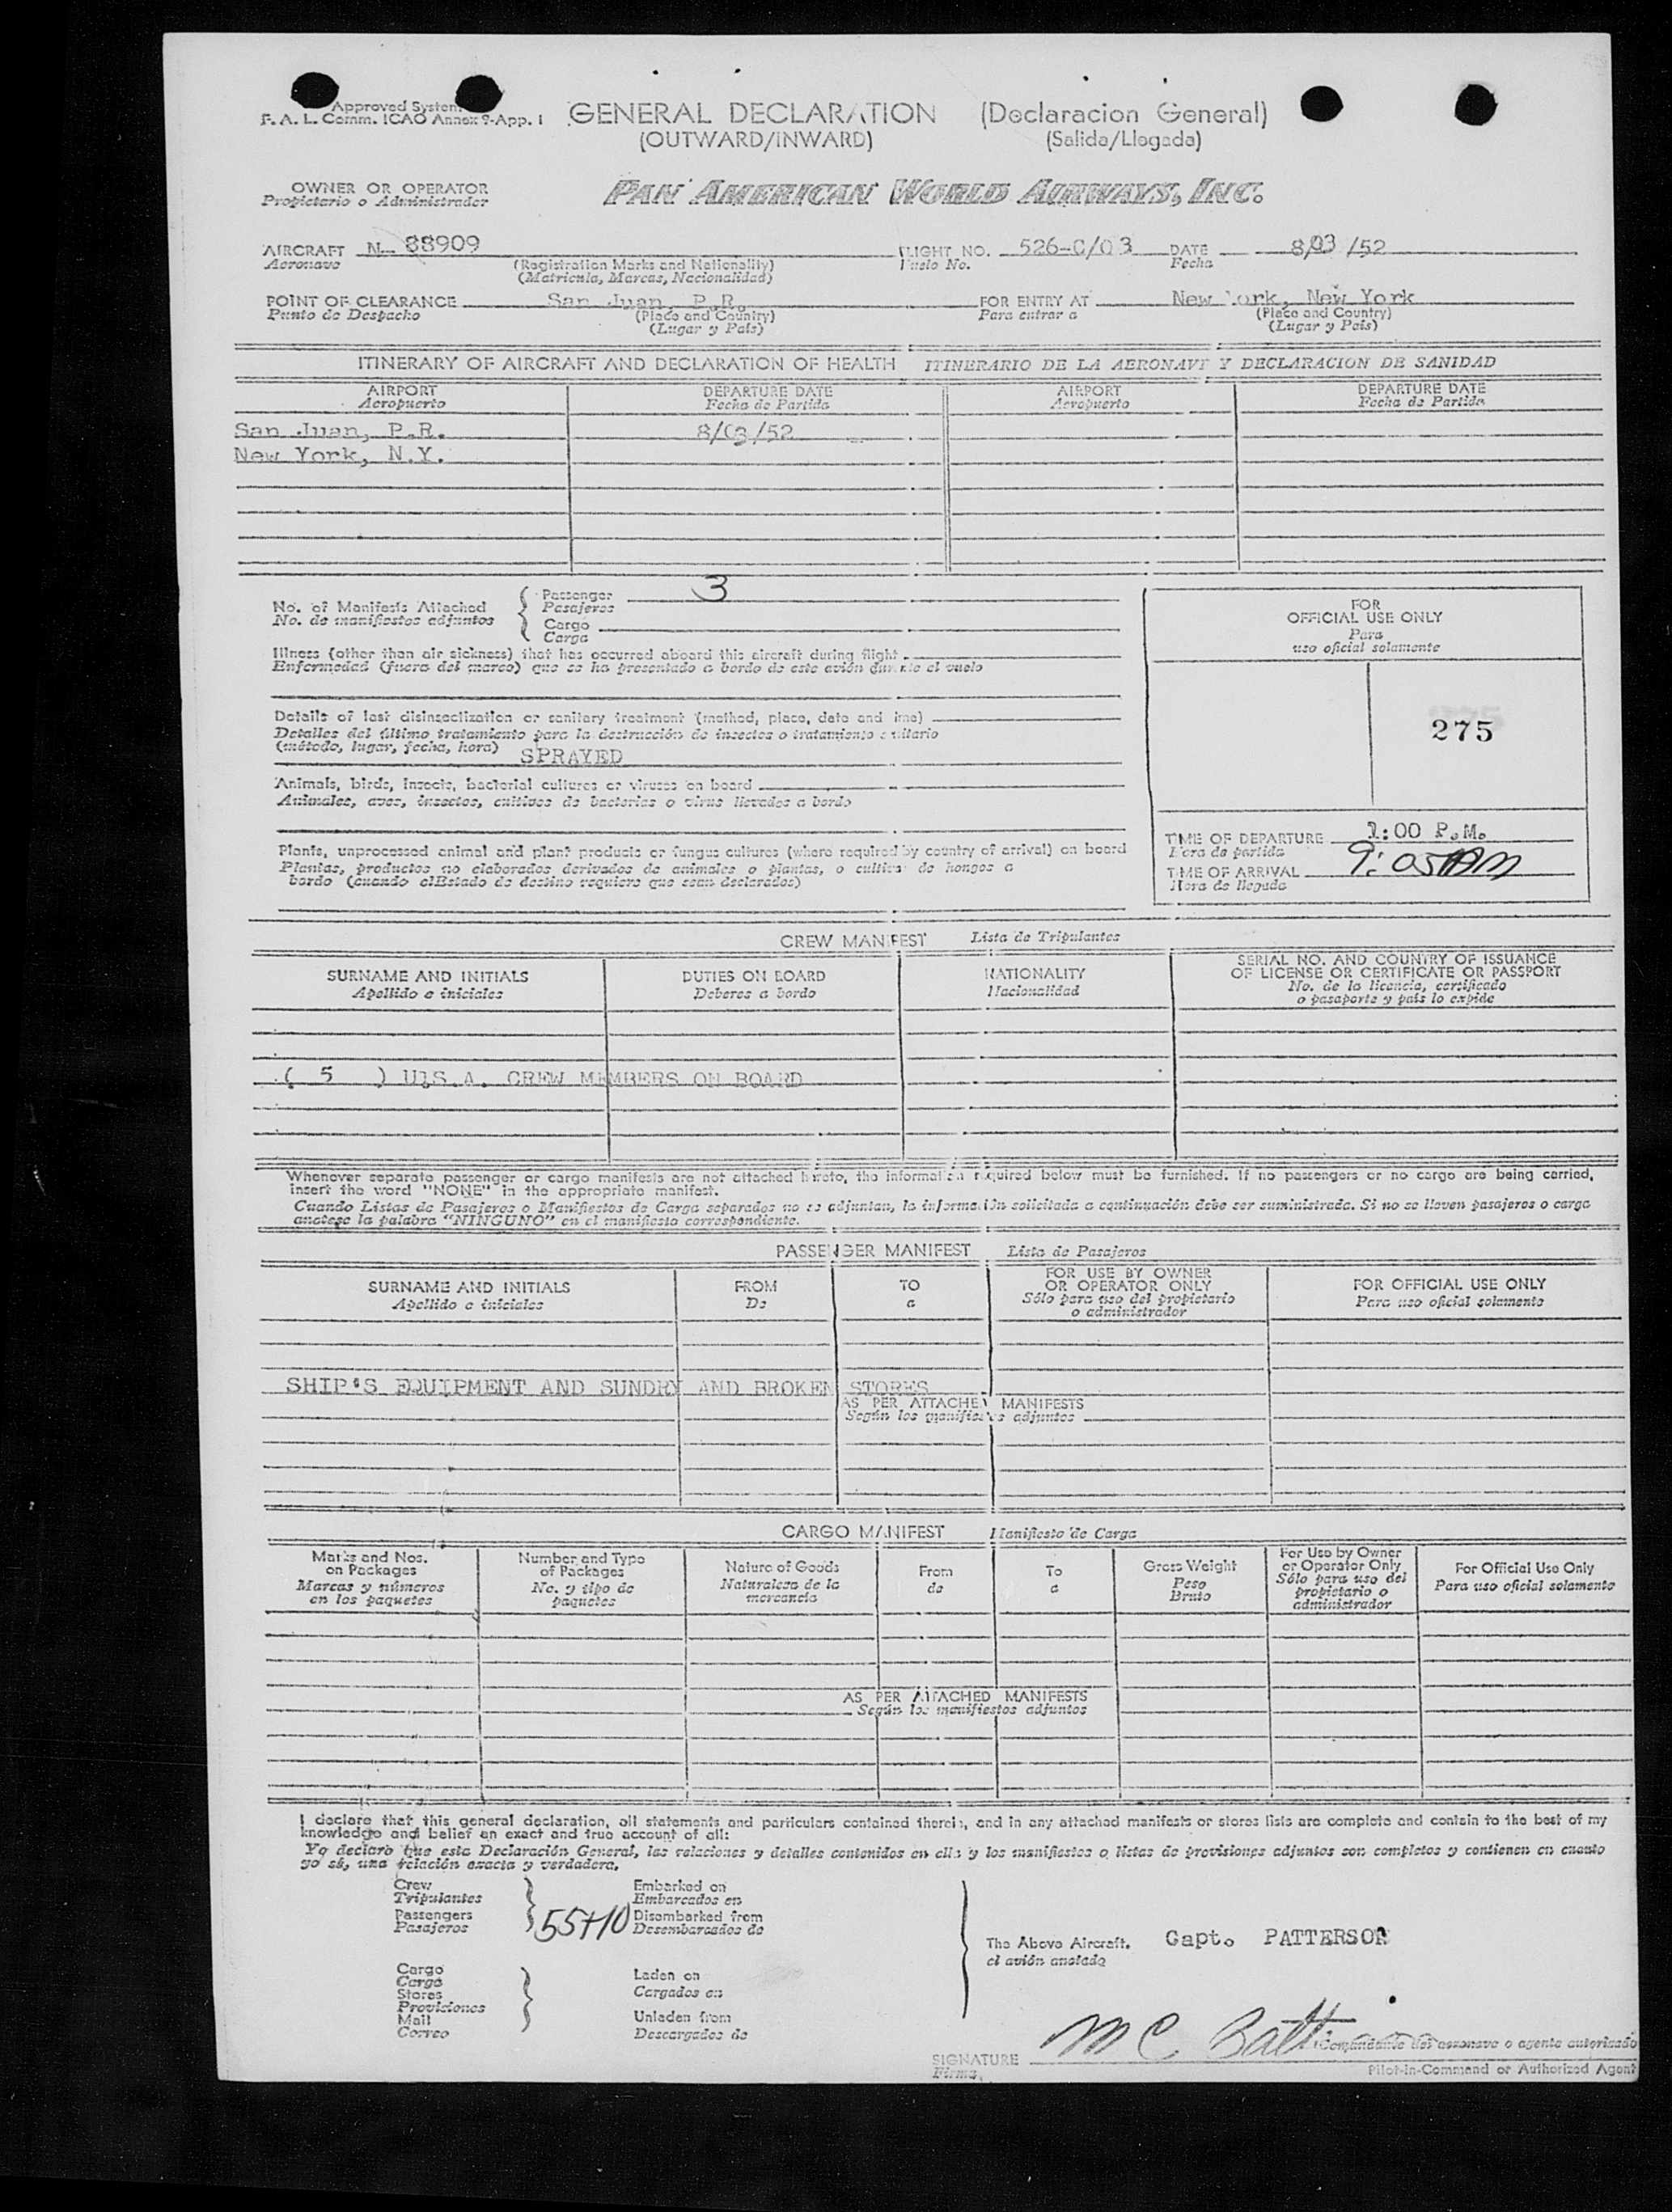 Approved System
F. A. L. Comm. ICAO Annex 9-App. I
GENERAL DECLARATION (Declaracion General)
(OUTWARD/INWARD) (Salida/Llegada)
OWNER OR OPERATOR
Propietario o Administrador
PAN AMERICAN WORLD AIRWAYS, INC.
AIRCRAFT N 88909 FLIGHT NO. 526-C/03 DATE 8/03/52
Aeronave (Registration Marks and Nationality) Vuelo No. Fecha
(Matricula, Marcas, Nacionalidad)
POINT OF CLEARANCE San Juan, P.R. FOR ENTRY AT New York, New York
Punto de Despacho (Place and Country) Para entrar a (Place and Country)
(Lugar y País) (Lugar y País)
ITINERARY OF AIRCRAFT AND DECLARATION OF HEALTH ITINERARIO DE LA AERONAVE Y DECLARACION DE SANIDAD
AIRPORT DEPARTURE DATE AIRPORT DEPARTURE DATE
Aeropuerto Fecha de Partida Aeropuerto Fecha de Partida
San Juan, P.R. 8/03/52
New York, N.Y.
No. of Manifests Attached
No. de manifiestos adjuntos
Passenger 3
Pasajeros
Cargo
Carga
Illness (other than air sickness) that has occurred aboard this aircraft during flight
Enfermedad (fuera del mareo) que se ha presentado a bordo de este avión durante el vuelo
Details of last disinsectization or sanitary treatment (method, place, date and time)
Detalles del último tratamiento para la destrucción de insectos o tratamiento sanitario
(método, lugar, fecha, hora) SPRAYED
Animals, birds, insects, bacterial cultures or viruses on board
Animales, aves, insectos, cultivos de bacterias o virus llevados a bordo
Plants, unprocessed animal and plant products or fungus cultures (where required by country of arrival) on board
Plantas, productos no elaborados derivados de animales o plantas, o cultivos de hongos a
bordo (cuando elEstado de destino requiere que sean declarados)
FOR
OFFICIAL USE ONLY
Para
uso oficial solamente
275
TIME OF DEPARTURE 1:00 P.M.
Hora de partida
TIME OF ARRIVAL 9:05 PM
Hora de llegada
CREW MANIFEST Lista de Tripulantes
SURNAME AND INITIALS DUTIES ON BOARD NATIONALITY SERIAL NO. AND COUNTRY OF ISSUANCE
OF LICENSE OR CERTIFICATE OR PASSPORT
Apellido e iniciales Deberes a bordo Nacionalidad No. de la licencia, certificado
o pasaporte y país lo expide
( 5 ) U.S.A. CREW MEMBERS ON BOARD
Whenever separate passenger or cargo manifests are not attached hereto, the information required below must be furnished. If no passengers or no cargo are being carried,
insert the word "NONE" in the appropriate manifest.
Cuando Listas de Pasajeros o Manifiestos de Carga separados no se adjuntan, la información solicitada a continuación debe ser suministrada. Si no se lleven pasajeros o carga
anotese la palabra "NINGUNO" en el manifiesto correspondiente.
PASSENGER MANIFEST Lista de Pasajeros
SURNAME AND INITIALS FROM TO FOR USE BY OWNER
OR OPERATOR ONLY FOR OFFICIAL USE ONLY
Apellido e iniciales De a Sólo para uso del propietario
o administrador Para uso oficial solamente
SHIP'S EQUIPMENT AND SUNDRY AND BROKEN STORES
AS PER ATTACHED MANIFESTS
Según los manifiestos adjuntos
CARGO MANIFEST Manifiesto de Carga
Marks and Nos.
on Packages
Marcas y números
en los paquetes
Number and Type
of Packages
No. y tipo de
paquetes
Nature of Goods
Naturaleza de la
mercancía
From
de
To
a
Gross Weight
Peso
Bruto
For Use by Owner
or Operator Only
Sólo para uso del
propietario o
administrador
For Official Use Only
Para uso oficial solamente
AS PER ATTACHED MANIFESTS
Según los manifiestos adjuntos
I declare that this general declaration, all statements and particulars contained therein, and in any attached manifests or stores lists are complete and contain to the best of my
knowledge and belief an exact and true account of all:
Yo declaro que esta Declaración General, las relaciones y detalles contenidos en ella y los manifiestos o listas de provisiones adjuntos son completos y contienen en cuanto
yo sé, una relación exacta y verdadera.
Crew
Tripulantes
Passengers
Pasajeros
55+10
Embarked on
Embarcados en
Disembarked from
Desembarcados de
Cargo
Carga
Stores
Provisiones
Mail
Correo
Laden on
Cargados en
Unladen from
Descargados de
The Above Aircraft.
el avión anotado
Capt. PATTERSON
SIGNATURE
Firma.
Comandante del aeronave o agente autorizado
Pilot-in-Command or Authorized Agent